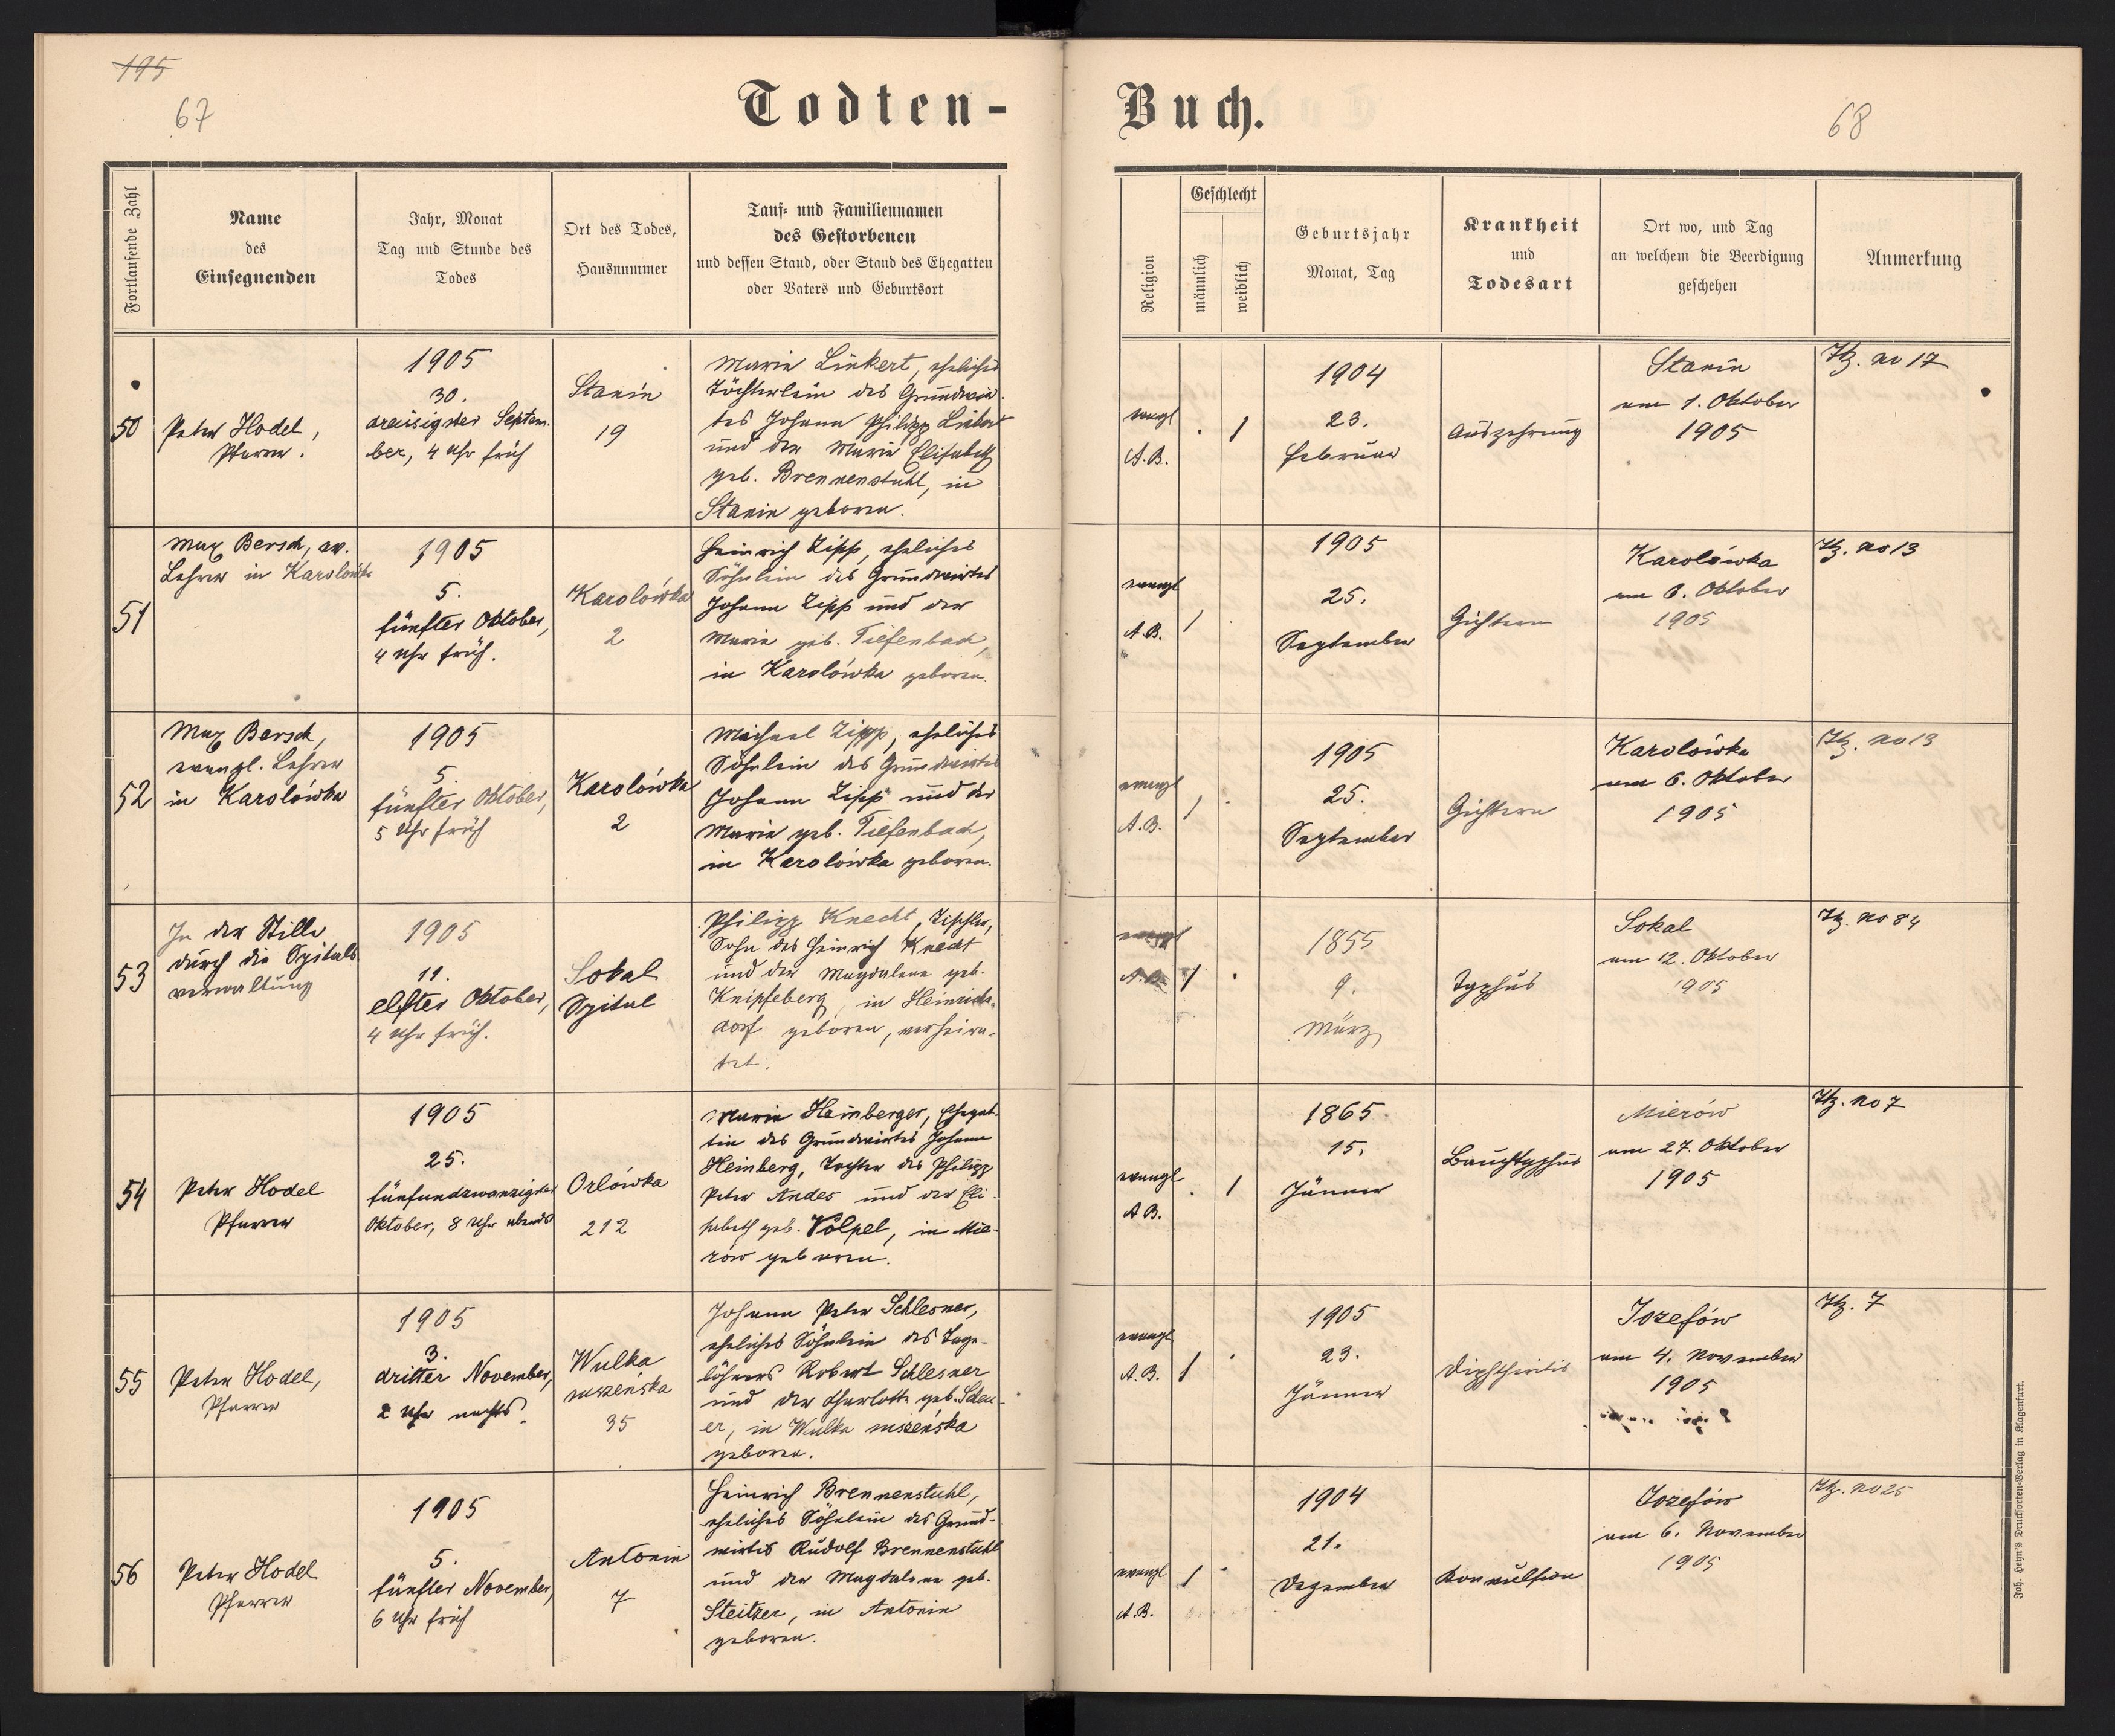 195
67
Todten-
Buch.
68
Fortlaufende Zahl
Name
des
Einsegnenden
Jahr, Monat
Tag und Stunde des
Todes
Ort des Todes,
Hausnummer
Tauf- und Familiennamen
des Gestorbenen
und dessen Stand, oder Stand des Ehegatten
oder Vaters und Geburtsort
Religion
Geschlecht
männlich
weiblich
Geburtsjahr
Monat, Tag
Krankheit
und
Todesart
Ort wo, und Tag
an welchem die Beerdigung
geschehen
Anmerkung
50
Peter Hodel,
Pfarrer.
1905
30.
dreisigster Septem-
ber, 4 Uhr früh
Stanin
19
Maria Linkert, eheliches
Töchterlein des Grundwir-
tes Johann Philipp Linkert
und der Maria Elisabeth
geb. Brennenstuhl, in
Stanin geboren.
evangl
A.B.
. 1
1904
23.
Februar
Auszehrung
Stanin
am 1. Oktober
1905
Itz. no 17
51
Max Bersch, ev.
Lehrer in Karolówka
1905
5.
fünfter Oktober,
4 Uhr früh.
Karolówka
2
Heinrich Zipp, eheliches
Söhnlein des Grundwirtes
Johann Zipp und der
Maria geb. Tiefenbach,
in Karolówka geboren.
evangl
A.B.
1 .
1905
25.
September
Gichtern
Karolówka
am 6. Oktober
1905
Itz. no 13
52
Max Bersch,
evangl. Lehrer
in Karolówka
1905
5.
fünfter Oktober,
5 Uhr früh
Karolówka
2
Michael Zipp, eheliches
Söhnlein des Grundwirtes
Johann Zipp und der
Maria geb. Tiefenbach,
in Karolówka geboren.
evangl
A.B.
1 .
1905
25.
September
Gichtern
Karolówka
am 6. Oktober
1905
Itz. no 13
53
In der Stille
durch die Spitals
verwaltung
1905
11.
elfter Oktober,
4 Uhr früh.
Sokal
Spital
Philipp Knecht, Tischler,
Sohn des Heinrich Knecht
und der Magdalena geb.
Knipfeberg, in Heinrichs-
dorf geboren, verheira-
tet.
evangl
A.B.
1 .
1855
9.
März
Typhus
Sokal
am 12. Oktober
1905
Itz. no 84
54
Peter Hodel
Pfarrer
1905
25.
fünfundzwanzigster
Oktober, 8 Uhr abends
Orlówka
212
Maria Heinberger, Ehegat-
tin des Grundwirtes Johann
Heinberg, Tochter des Philipp
Peter Andes und der Eli-
sabeth geb. Völpel, in Mie-
rów geboren.
evangl
A B.
. 1
1865
15.
Jänner
Bauchtyphus
Mierów
am 27. Oktober
1905
Itz. no 7
55
Peter Hodel,
Pfarrer
1905
3.
dritter November,
2 Uhr nachts.
Wulka
suszeńska
35
Johann Peter Schlesner,
eheliches Söhnlein des Tage-
löhners Robert Schlesner
und der Charlotte geb. Scheu-
er, in Wulka suszeńska
geboren.
evangl
A.B.
1 .
1905
23.
Jänner
Diphtheritis
Jozefów
am 4. November
1905
Itz. 7
56
Peter Hodel
Pfarrer
1905
5.
fünfter November,
6 Uhr früh
Antonin
7
Heinrich Brennenstuhl,
eheliches Söhnlein des Grund-
wirtes Rudolf Brennenstuhl
und der Magdalena geb.
Steitzer, in Antonin
geboren.
evangl
A.B.
1 .
1904
21.
Dezember
Konvulsion
Jozefów
am 6. November
1905
Itz. no 25
Joh. Heyn's Drucksorten-Verlag in Klagenfurt.